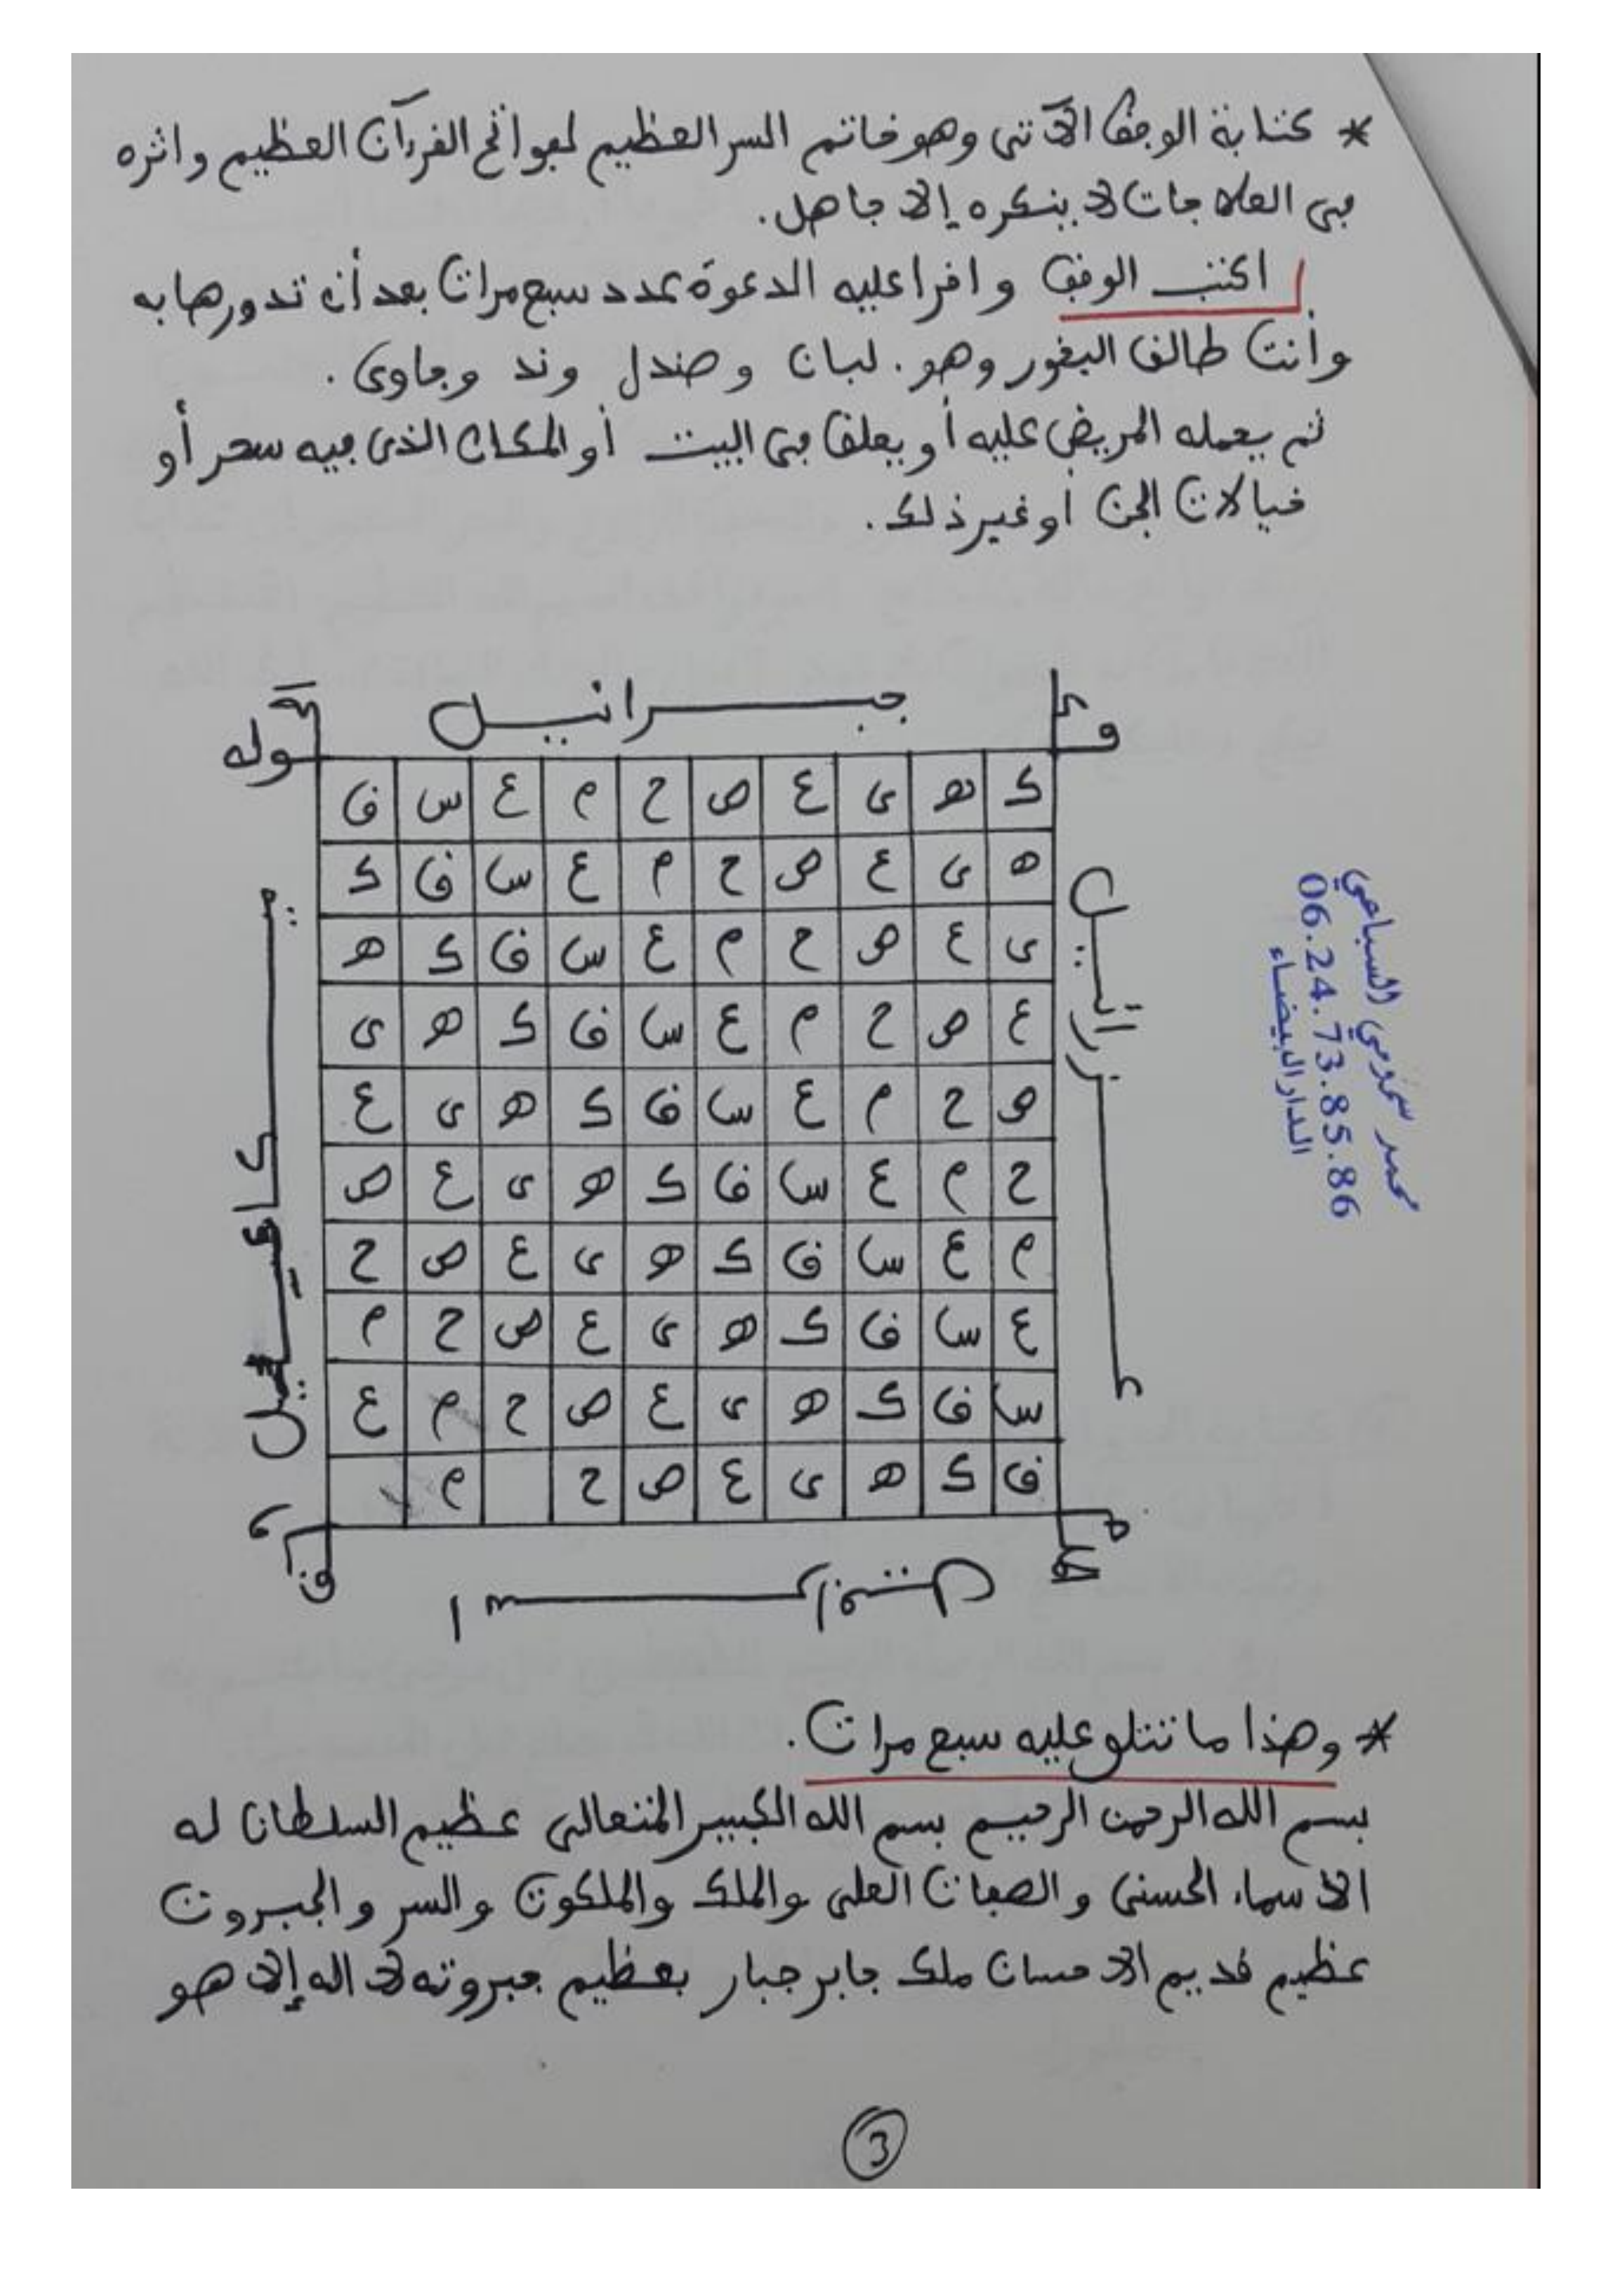 * كتابة الوفق الآتي وهو خاتم السر العظيم لفواتح القرءان العظيم واثره
في العلاجات لا ينكره إلا جاهل.
اكتب الوفق واقرا عليه الدعوة عدد سبع مرات بعد أن تدورها به
وأنت طالق البخور وهو. لبان وصندل وند وجاوى.
ثم يحمله المريض عليه أو يعلق في البيت أو المكان الذى فيه سحر أو
خيالات الجن أو غير ذلك.
جبرائيل
وله
ك ه ى ع ص ح م ع س ق
ه ى ع ص ح م ع س ق ك
ى ع ص ح م ع س ق ك ه
ع ص ح م ع س ق ك ه ى
ص ح م ع س ق ك ه ى ع
ح م ع س ق ك ه ى ع ص
م ع س ق ك ه ى ع ص ح
ع س ق ك ه ى ع ص ح م
س ق ك ه ى ع ص ح م ع
ق ك ه ى ع ص ح م
عزرائيل
ميكائيل
محمد سمومي السباعي
06.24.73.85.86
الدار البيضاء
* وهذا ما تتلو عليه سبع مرات.
بسم الله الرحمن الرحيم بسم الله الكبير المتعالى عظيم السلطان له
الاسماء الحسنى والصفات العلى والملك والملكوت والسر والجبروت
عظيم قديم الاحسان ملك جابر جبار بعظيم جبروته لا اله إلا هو
3